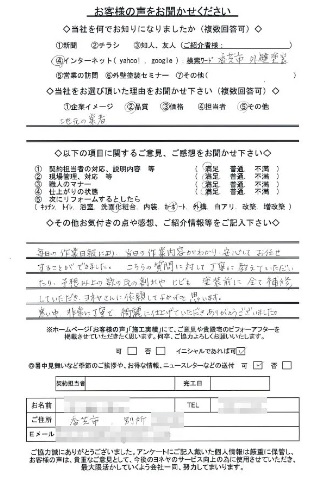 お客様の声をお聞かせください
◇当社を何でお知りになりましたか(複数回答可)◇
①新聞 ②チラシ ③知人、友人(ご紹介者様: )
④インターネット(yahoo!、google)、検索ワード 香芝市 外壁塗装
⑤営業の訪問 ⑥外壁塗装セミナー ⑦その他( )
◇当社をお選び頂いた理由をお聞かせ下さい(複数回答可)◇
①企業イメージ ②品質 ③価格 ④担当者 ⑤その他
地元の業者
◇以下の項目に関するご意見、ご感想をお聞かせ下さい◇
① 契約担当者の対応、説明内容 等 ( 満足 普通 不満 )
② 現場管理、対応 等 ( 満足 普通 不満 )
③ 職人のマナー ( 満足 普通 不満 )
④ 仕上がりの状態 ( 満足 普通 不満 )
⑤ 次にリフォームするとしたら
(キッチン トイレ 浴室 洗面化粧台 内装 カーポート 外構 白アリ 改築 増改築)
◇その他お気付きの点や感想、ご紹介情報等をご記入下さい◇
毎日の作業日誌により、当日の作業内容がわかり、安心してお任せ
することができました。こちらの質問に対して丁寧に教えていただい
たり、予想以上の
していただき、ヨネヤさんに依頼してよかったと思います。
暑い中 非常に丁寧で綺麗に仕上げていただきありがとうございました
※ホームページ「お客様の声」「施工実績」にて、ご意見や貴邸宅のビフォーアフターを
掲載させていただきたく思います。何卒、ご協力よろしくお願いいたします。
可 否 イニシャルであれば可
◎暑中見舞いなど季節のご挨拶や、お得な情報、ニュースレターなどの送付 可 否
契約担当者 完工日
お名前 TEL
ご住所 香芝市 別所
Eメール
ご協力誠にありがとうございました。アンケートにご記入戴いた個人情報は厳重に保管し、
お客様の声は、貴重なご意見として、今後のヨネヤのサービス向上の為に使用させていただき、
最大限活かしていくよう社員一同、努力してまいります。